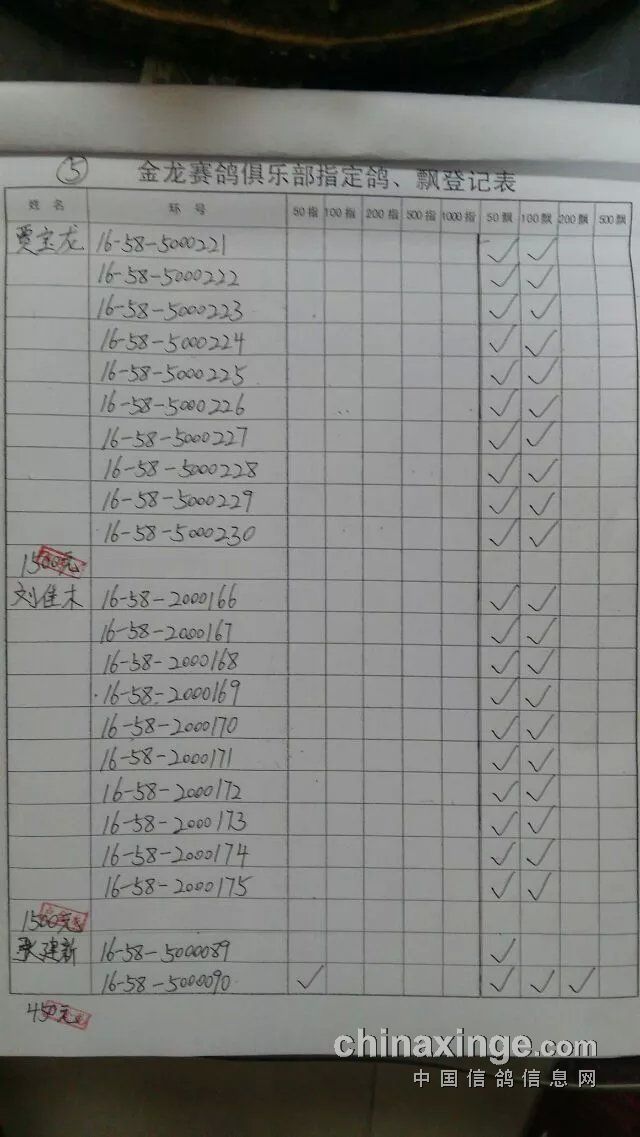 ⑤ 金龙赛鸽俱乐部指定鸽、飘登记表
姓名 环号 50指 100指 200指 500指 1000指 50飘 100飘 200飘 500飘
贾宝龙 16-58-5000221 ✓ ✓
16-58-5000222 ✓ ✓
16-58-5000223 ✓ ✓
16-58-5000224 ✓ ✓
16-58-5000225 ✓ ✓
16-58-5000226 ✓ ✓
16-58-5000227 ✓ ✓
16-58-5000228 ✓ ✓
16-58-5000229 ✓ ✓
16-58-5000230 ✓ ✓
1500元
刘佳木 16-58-2000166 ✓ ✓
16-58-2000167 ✓ ✓
16-58-2000168 ✓ ✓
16-58-2000169 ✓ ✓
16-58-2000170 ✓ ✓
16-58-2000171 ✓ ✓
16-58-2000172 ✓ ✓
16-58-2000173 ✓ ✓
16-58-2000174 ✓ ✓
16-58-2000175 ✓ ✓
1500元
张建新 16-58-5000089 ✓
16-58-5000090 ✓ ✓ ✓ ✓
450元
chinaxinge.com
中国信鸽信息网